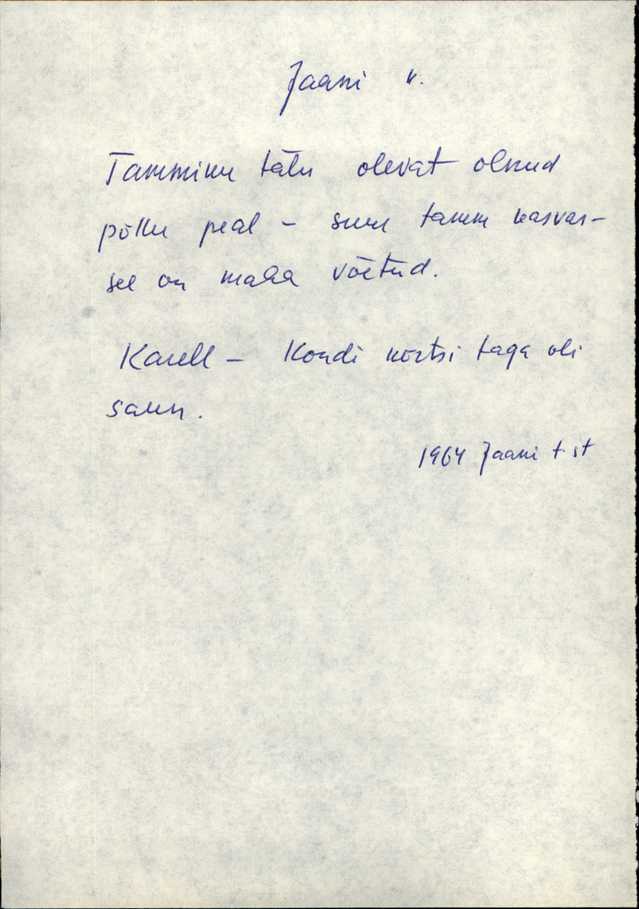 Jaani k.
Tammiku talu olevat olnud
põllu peal – suur tamm kasvas –
see on maha võetud.
Karell – Kondi kõrtsi taga oli
saun.
1964 Jaani t. st